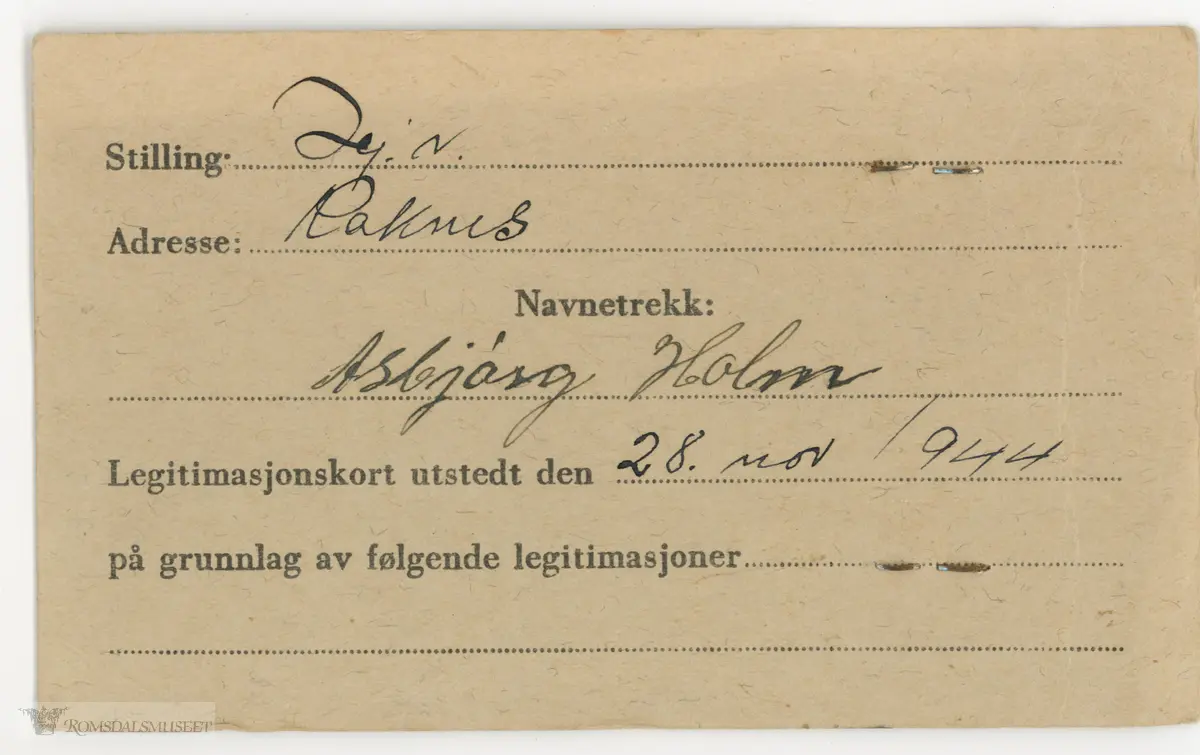 Stilling: Tj. v.
Adresse: Raknes
Navnetrekk:
Asbjörg Holm
Legitimasjonskort utstedt den 28. nov 1944
på grunnlag av følgende legitimasjoner
ROMSDALSMUSEET